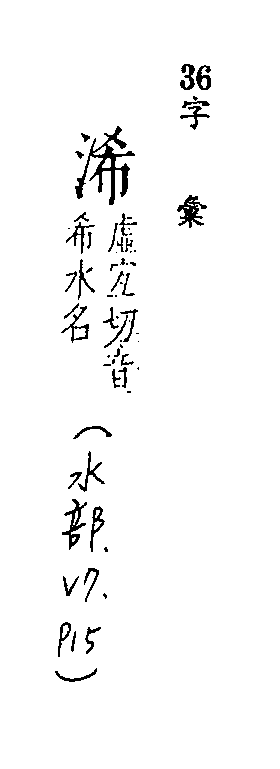 36字彙
浠
虛宜切音
希水名
(水部. V7. P15)